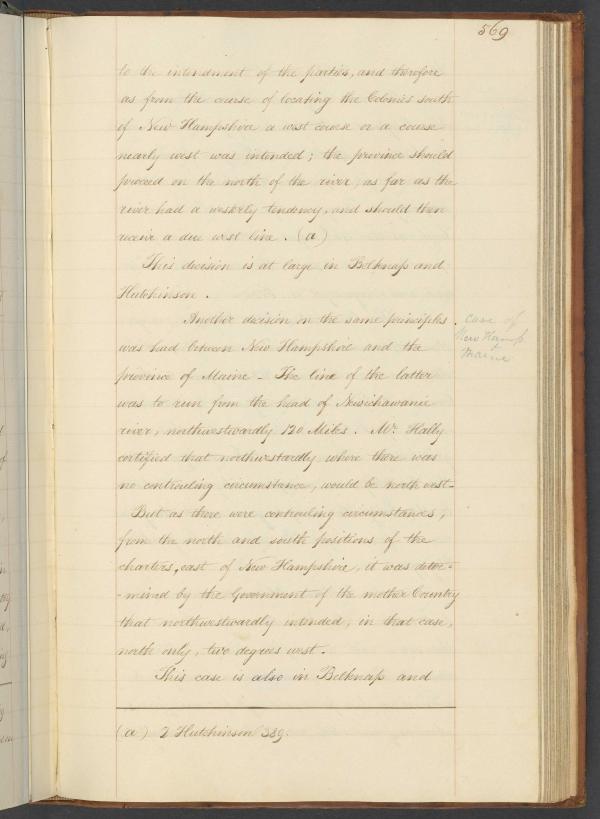 569
to the intendment of the parties, and therefore
as from the course of locating the Colonies south
of New Hampshire a west course or a course
nearly west was intended; the province should
proceed on the north of the river, as far as the
river had a westerly tendency, and should then
receive a due west line. (a)
This decision is at large in Belknap and
Hutchinson.
Another decision on the same principles
was had between New Hampshire and the
province of Maine - The line of the latter
was to run from the head of Newichawanie
river, northwestwardly 120 Miles. Mr. Hally
certified that northwestardly where there was
no controuling circumstance, would be north west-
But as there were controuling circumstances,
from the north and south positions of the
charters, east of New Hampshire, it was deter-
-mined by the Government of the mother Country
that northwestwardly intended, in that case,
north only, two degrees west.
This case is also in Belknap and
case of
New Hamp
&
Maine
(a) 2 Hutchinson 389.